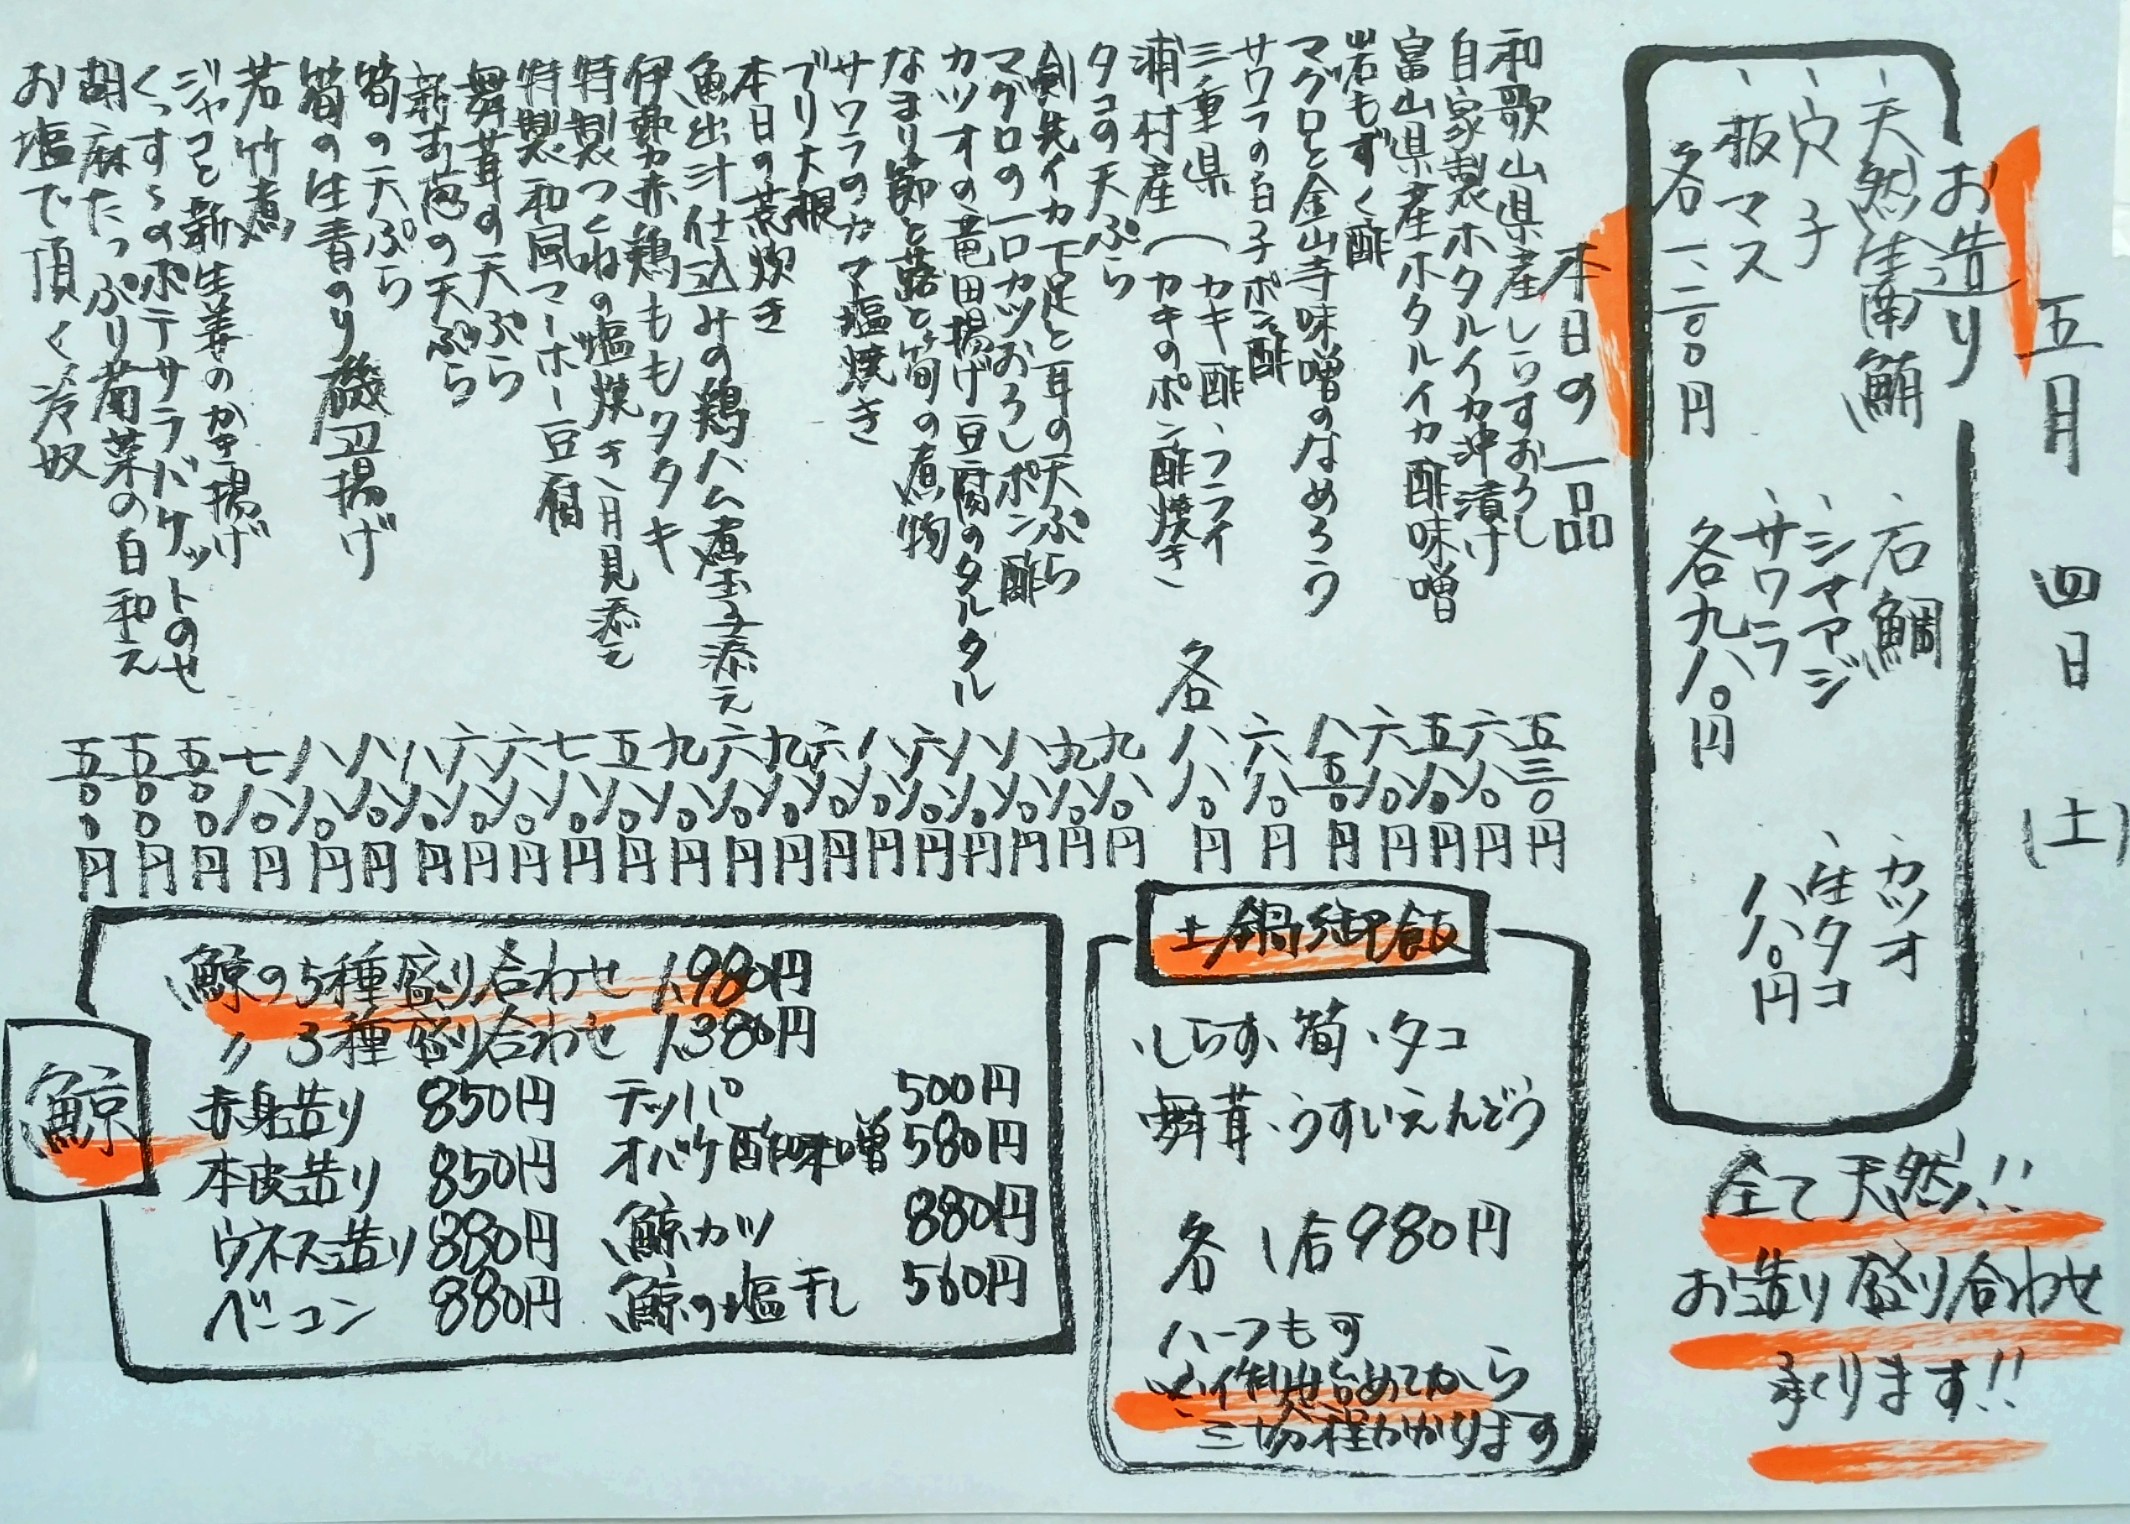 五月 四日 (土)
お造り
、天然生南鮪
、穴子
、板マス
各一、二〇〇円
、石鯛
、シマアジ
、サワラ
各九八〇円
、カツオ
、生タコ
八八〇円
全て天然!!
お造り盛り合わせ
承ります!!
本日の一品
和歌山県産しらすおろし 五三〇円
自家製ホタルイカ沖漬け 六八〇円
富山県産ホタルイカ酢味噌 五八〇円
岩もずく酢 六八〇円
マグロと金山寺味噌のなめろう 八五〇円
サワラの白子ポン酢 六八〇円
三重県(カキ酢、フライ
浦村産(カキのポン酢焼き 各八八〇円
タコの天ぷら 九八〇円
剣先イカ下足と耳の天ぷら 九八〇円
マグロの一口カツおろしポン酢 八八〇円
カツオの竜田揚げ豆腐のタルタル 八八〇円
なまり節と蕗と筍の煮物 六八〇円
サワラのカマ塩焼き 八八〇円
ブリ大根 六八〇円
本日の荒炊き 九八〇円
魚出汁仕込みの鶏ハム煮玉子添え 六八〇円
伊勢赤鶏ももタタキ 九八〇円
特製つくねの塩焼き、月見添え 五八〇円
特製和風マーボー豆腐 七八〇円
舞茸の天ぷら 六八〇円
新玉葱の天ぷら 六八〇円
筍の天ぷら 八八〇円
筍の生青のり磯辺揚げ 八八〇円
若竹煮 八八〇円
ジャコと新生姜のかき揚げ 七八〇円
くっすぅのポテサラバケットのせ 五〇〇円
胡麻たっぷり菊菜の白和え 五〇〇円
お塩で頂く冷奴 五〇〇円
土鍋御飯
、しらす、筍、タコ
舞茸、うすいえんどう
各 1合980円
ハーフも可
※作り始めてから
三十分程かかります
鯨
鯨の5種盛り合わせ 1,980円
〃 3種盛り合わせ 1,380円
赤身造り 850円 テッパ 500円
本皮造り 850円 オバケ酢味噌 580円
ウネス造り 880円 鯨カツ 880円
ベーコン 880円 鯨の塩干し 560円